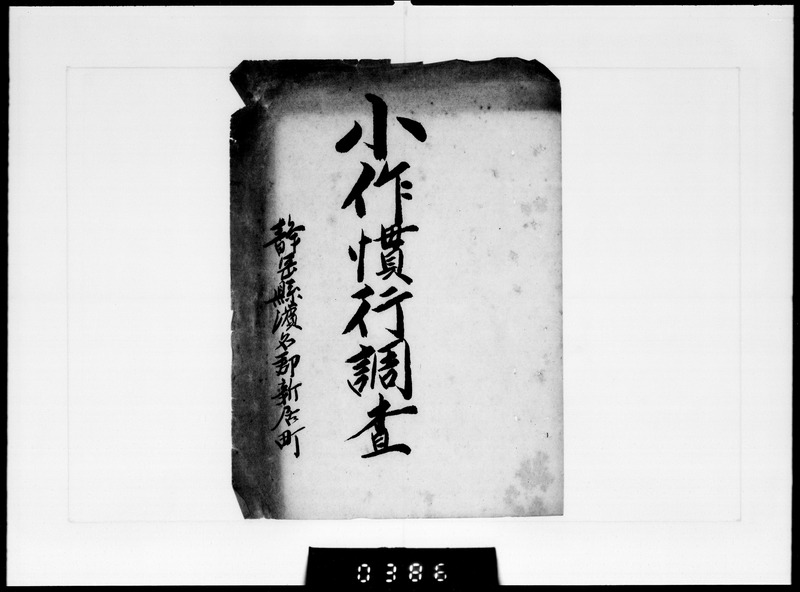 小作慣行調査
静岡縣濱名郡新居町
0386